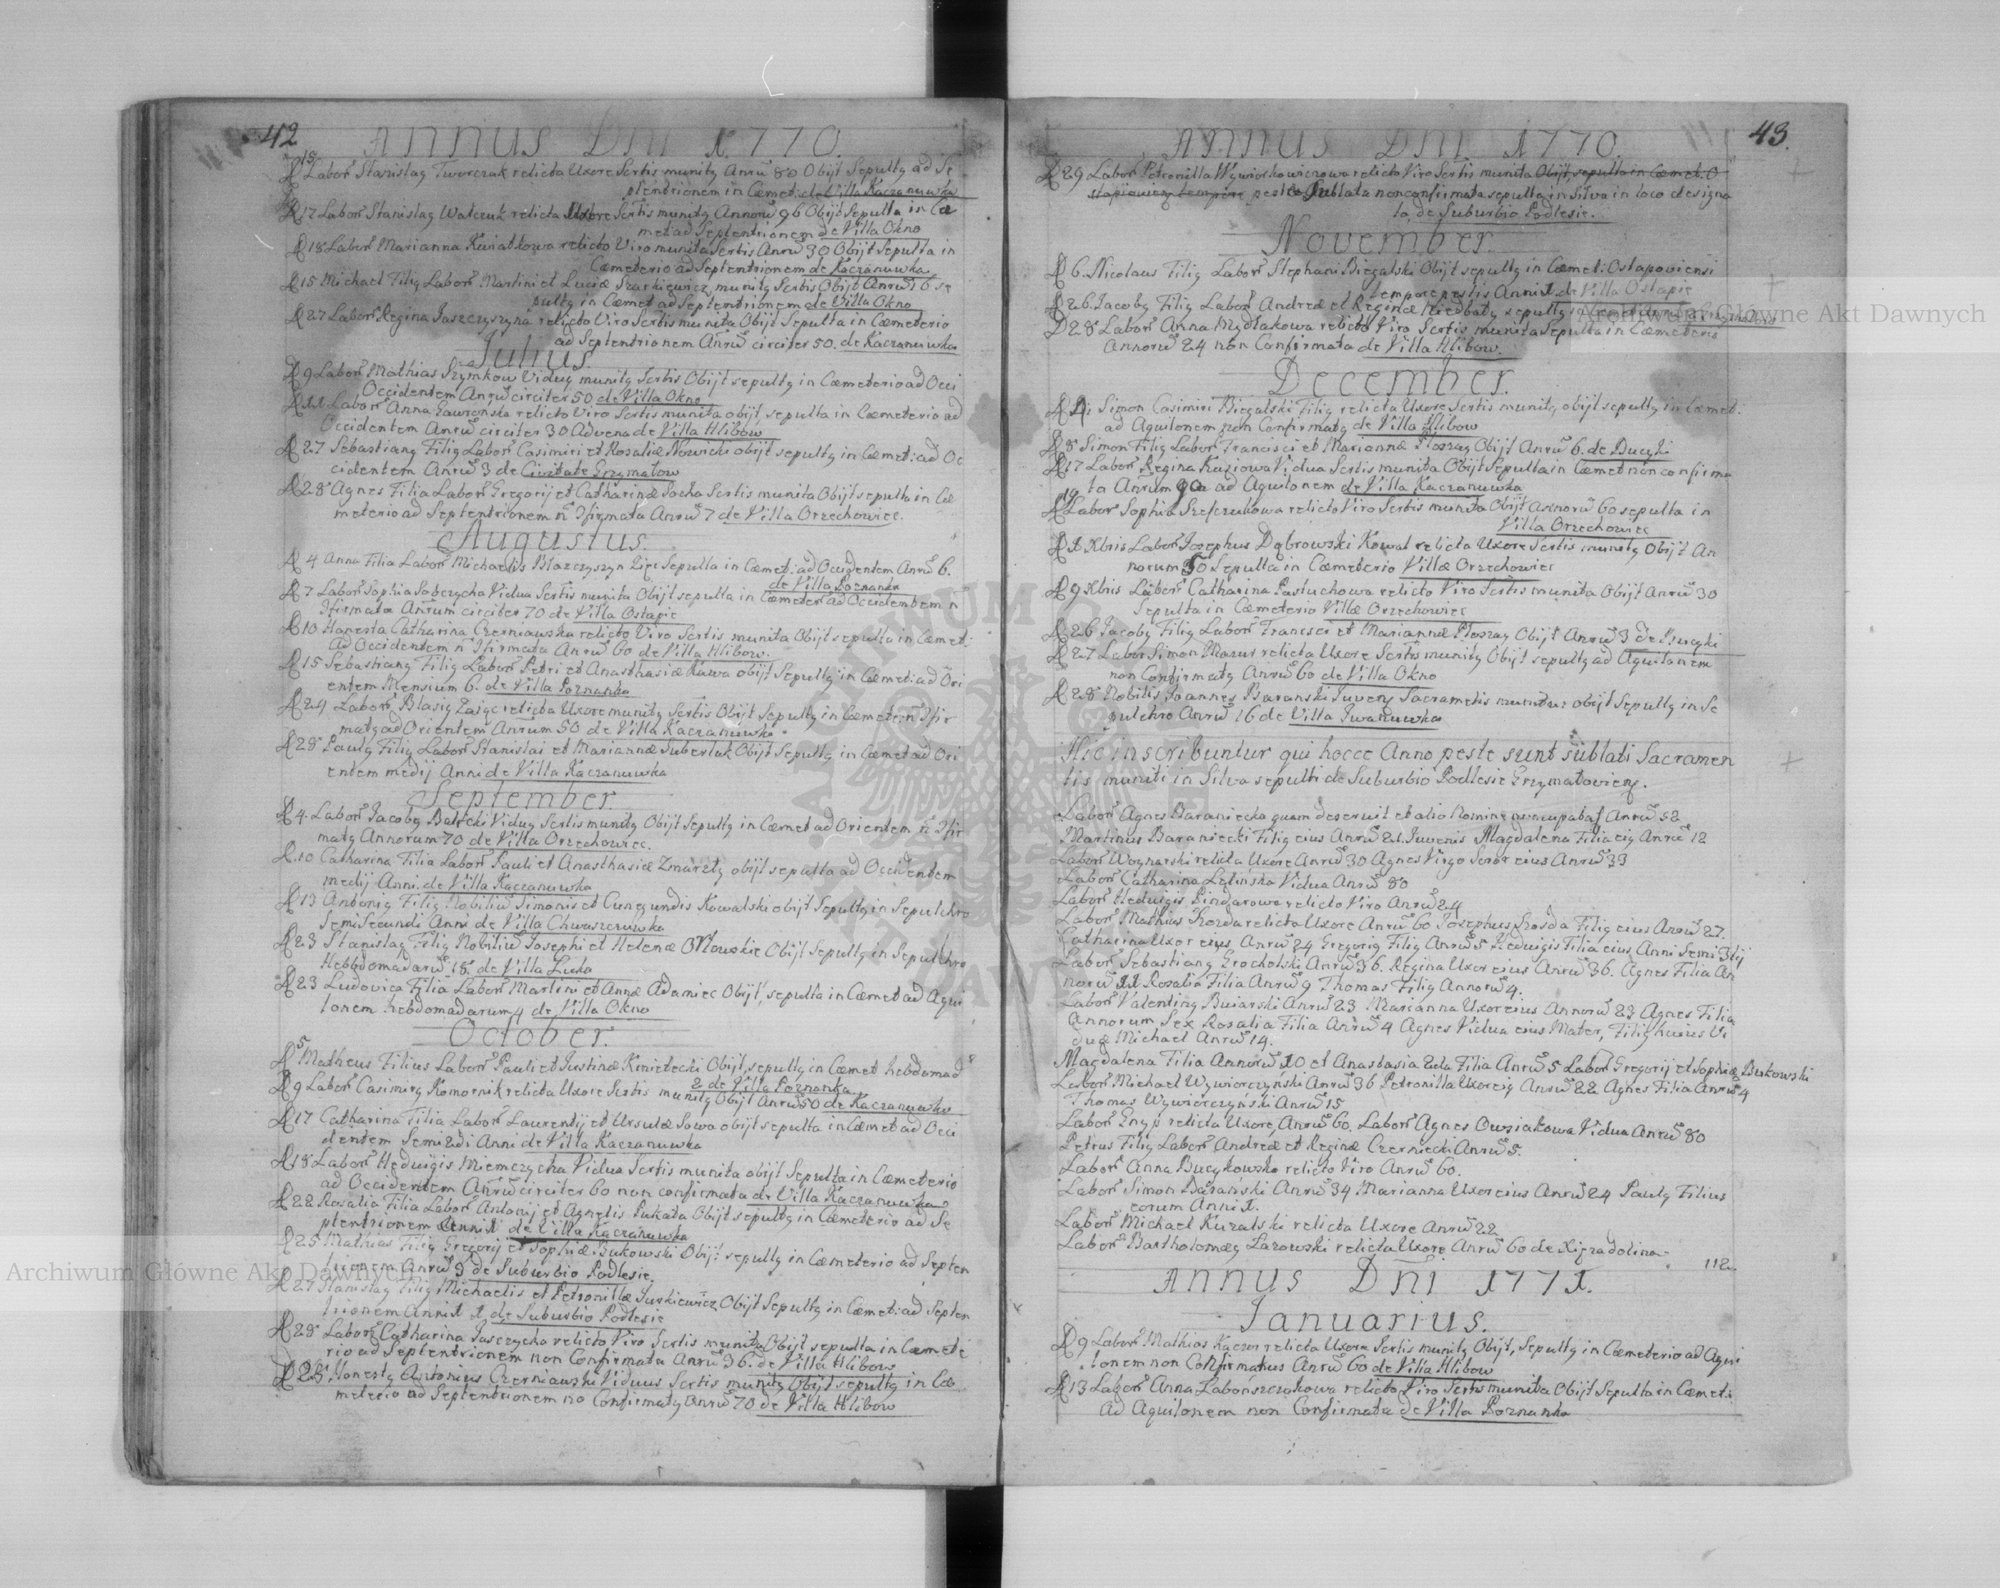 42
ANNUS Dni 1770.
D 15 Labor Stanislaus Tworczuk relicta Uxore Sertis munitq Anrū 80 Obijt Sepultq ad Se
ptentrionem in Cæmet: de Villa Kaczanuwka
D 17 Labor Stanislaq Walczuk relicta Uxore Sertis munitq Annorū 96 Obijt Sepulta in Cæ
met ad Septentrionem de Villa Okno
D 18 Labor Marianna Kwiatkowa relicto Viro munita Sertis Anrū 30 Obijt Sepulta in
Cæmeterio ad Septentrionem de Kaczanuwka
D 15 Michael Filiq Labor Martini et Luciæ munitq Sertis Obijt Anrū 16 se
pultq in Cæmet ad Septentrionem de Villa Okno
D 27 Labor Regina Jaszczyszyna relicto Viro Sertis munita Obijt Sepulta in Cæmeterio
ad Septentrionem Anrū circiter 50. de Kaczanuwka
Julius.
D 9 Labor Mathias Szymkow Viduq munitq Sertis Obijt sepultq in Cæmeterio ad Occi
Occidentem Anrū circiter 50 de Villa Okno
D 11 Labor Anna Gawronska relicto Viro Sertis munita obijt sepulta in Cæmeterio ad
Occidentem Anrū circiter 30 Advena de Villa Hlibow
D 27 Sebastianq Filiq Labor Casimiri et Rosaliæ Nowicki obijt sepultq in Cæmet: ad Oc
cidentem Anrū 3 de Civitate Grzymałow
D 28 Agnes Filia Labor Gregorij et Catharinæ Socha Sertis munita Obijt sepulta in Cæ
meterio ad Septentrionem n 3firmata Anrū 7 de Villa Orzechowiec.
Augustus.
D 4 Anna Filia Labor Michaelis Blazczyszyn Sepulta in Cæmet: ad Occidentem Anrū 6.
de Villa Poznanka
D 7 Labor Sophia Sobczycha Vidua Sertis munita Obijt sepulta in Cæmeter ad Occidentem n
3firmata Anrum circiter 70 de Villa Ostapie
D 10 Honesta Catharina Czerniawska relicto Viro Sertis munita Obijt sepulta in Cæmet:
ad Occidentem n 3firmata Anrū 60 de Villa Hlibow.
D 15 Sebastianq Filiq Labor Petri et Anasthasiæ Kawa obijt Sepultq in Cæmet: ad Ori
entem Mensium 6. de Villa Poznanka
D 24 Labor Blasiq Zaiąc relicta Uxore munitq Sertis Obijt Sepultq in Cæmet n 3fir
matq ad Orientem Anrum 50 de Villa Kaczanuwka.
D 28 Paulq Filiq Labor Stanislai et Mariannæ Suberlak Obijt Sepultq in Cæmet ad Ori
entem medij Anni de Villa Kaczanuwka
September
D 4. Labor Jacobq Viduq Sertis munitq Obijt Sepultq in Cæmet ad Orientem n 3fir
matq Annorum 70 de Villa Orzechowiec.
D. 10 Catharina Filia Labor Pauli et Anasthasiæ obijt sepulta ad Occidentem
medij Anni. de Villa Kaczanuwka
D 13 Antoniq Filiq Nobiliū Simonis et Cunegundis Kowalski obijt Sepultq in Sepulchro
SemiSecundi Anni de Villa Chwaszczuwka
D 23 Stanislaq Filiq Nobiliū Josephi et Helenæ Orłowskie Obijt Sepultq in Sepulchro
Hebbdomadarū 15. de Villa Luka
D 23 Ludovica Filia Labor Martini et Annæ Adamiec Obijt, sepulta in Cæmet ad Aqui
lonem hebdomadarum 4 de Villa Okno
October.
D 5 Matheus Filius Labor Pauli et Justinæ Obijt, sepultq in Cæmet hebdomad
2 de Villa Poznanka
D 9 Labor Casimirq Komornik relicta Uxore Sertis munitq Obijt Anrū 50 de Kaczanuwka
D 17 Catharina Filia Labor Laurentij et Ursulæ Sowa obijt sepulta in Cæmet ad Occi
dentem Semi2di Anni de Villa Kaczanuwka
D 18 Labor Hedvigis Niemczycha Vidua Sertis munita obijt Sepulta in Cæmeterio
ad Occidentem Anrū circiter 60 non confirmata de Villa Kaczanuwka
D 22 Rosalia Filia Labor Antonij et Agnetis Pukała Obijt sepultq in Cæmeterio ad Se
ptentrionem Anni 1 de Villa Kaczanuwka
D 25 Mathias Filiq Gregorij et Sophiæ Bukowski Obijt sepultq in Cæmeterio ad Septen
trionem Anrū 9 de Suburbio Podlesie.
D 27 Stanislaq Filiq Michaelis et Petronillæ Obijt Sepultq in Cæmet: ad Septen
trionem Anni 1 de Suburbio Podlesie
D 28 Labor Catharina Jaszczycha relicto Viro Sertis munita Obijt sepulta in Cæmete
rio ad Septentrionem non Confirmata Anrū 36. de Villa Hlibow
D 28 Honestq Antonius Czerniawski Viduus Sertis munitq Obijt sepultq in Cæ
meterio ad Septentrionem no Confirmatq Anrū 70 de Villa Hlibow
43.
ANNUS Dni 1770
D 29 Labor Petronilla Wywiorkowiczowa relicto Viro Sertis munita Obijt, sepulta in Cæmet. O
stapioviensi tempore peste Sublata nonconfirmata sepulta in Silva in loco designa
to, de Suburbio Podlesie.
November
D 6. Nicolaus Filiq Labor Stephani Biegalski Obijt sepultq in Cæmet: Ostapoviensi
tempore pestis Anni 1. de Villa Ostapie
D 26. Jacobq Filiq Labor Andreæ et Reginæ Niedbały sepultq
D 28 Labor Anna Mydlakowa relicto Viro Sertis munita Sepulta in Cæmeterio
Annorū 24 non Confirmata de Villa Hlibow.
December.
D 4. Simon Casimiri Biegalski Filiq relicta Uxore Sertis munitq obijt sepultq in Cæmet:
ad Aquilonem non Confirmatq de Villa Hlibow
D 8 Simon Filiq Labor Francisci et Mariannæ Płoszay Obijt Anrū 6. de Bucyki
D 17 Labor Regina Kuziowa Vidua Sertis munita Obijt Sepulta in Cæmet non confirma
ta Anrum 90 ad Aquilonem de Villa Kaczanuwka
D 19 Labor Sophia Szefczukowa relicto Viro Sertis munita Obijt Annorū 60 sepulta in
Villa Orzechowiec
D 1 Xbris Labor Josephus Dąbrowski Kowal relicta Uxore Sertis munitq Obijt An
norum 50 Sepulta in Cæmeterio Villæ Orzechowiec
D 9 Xbris Labor Catharina Pastuchowa relicto Viro Sertis munita Obijt Anrū 30
Sepulta in Cæmeterio Villæ Orzechowiec
D 26 Jacobq Filiq Labor Francisci et Mariannæ Płoszay Obijt Anrū 3 de Bucyki
D 27 Labor Simon Mazur relicta Uxore Sertis munitq Obijt sepultq ad Aquilonem
non Confirmatq Anrū 60 de Villa Okno
D 28 Nobilis Joannes Baranski Juvenq Sacrametis munitus obijt Sepultq in Se
pulchro Anrū 16 de Villa Iwanuwka
Hic inscribuntur qui hocce Anno peste sunt sublati Sacramen
tis muniti in Silva sepulti de Suburbio Podlesie Grzymałoviens.
Labor Agnes Baraniecka quam deseruit et alio Nomine Anrū 52
Martinus Baraniecki Filiq eius Anrū 21. Juvenis Magdalena Filia eiq Anrū 12
Labor Woynarski relicta Uxore Anrū 30 Agnes Virgo Soror eius Anrū 39
Labor Catharina Vidua Anrū 80
Labor Hedvigis Pindarowa relicto Viro Anrū 24
Labor Mathius relicta Uxore Anrū 60 Josephus Filiq eius Anrū 27.
Catharina Uxor eius Anrū 24 Gregoriq Filiq Anrū 5 Hedvigis Filia eius Anni Semi 3tij
Labor Sebastianq Grocholski Anrū 36. Regina Uxor eius Anrū 36. Agnes Filia An
norū 11 Rosalia Filia Anrū 9 Thomas Filiq Annorū 4.
Labor Valentinq Buiarski Anrū 23 Marianna Uxor eius Annorū 23 Agnes Filia
Annorum Sex Rosalia Filia Anrū 4 Agnes Vidua eius Mater, Filiq huius Vi
duæ Michael Anrū 14.
Magdalena Filia Annorū 10 et Anastasia 2da Filia Anrū 5 Labor Gregorij et Sophiæ Bukowski
Labor Michael Wywiórczyński Anrū 36 Petronilla Uxor eiq Anrū 22 Agnes Filia Anrū 4
Thomas Wywiórczyński Anrū 15
Labor relicta Uxore, Anrū 60. Labor Agnes Owsiakowa Vidua Anrū 80
Petrus Filiq Labor Andreæ et Reginæ Czerniecki Anrū 5.
Labor Anna Bucykowska relicto Viro Anrū 60.
Labor Simon Barański Anrū 34 Marianna Uxor eius Anrū 24 Paulq Filius
eorum Anni 1.
Labor Michael Kuzalski relicta Uxore Anrū 22
Labor Bartholomæq Lazowski relicta Uxore Anrū 60 de
112.
ANNUS Dni 1771.
Januarius.
D 9 Labor Mathias Kaczor relicta Uxore Sertis munitq Obijt, Sepultq in Cæmeterio ad Aqui
lonem non Confirmatus Anrū 60 de Villa Hlibow
D 13 Labor Anna Labończukowa relicto Viro Sertis munita Obijt Sepulta in Cæmet:
ad Aquilonem non Confirmata de Villa Poznanka
Archiwum Główne Akt Dawnych
Archiwum Główne Akt Dawnych